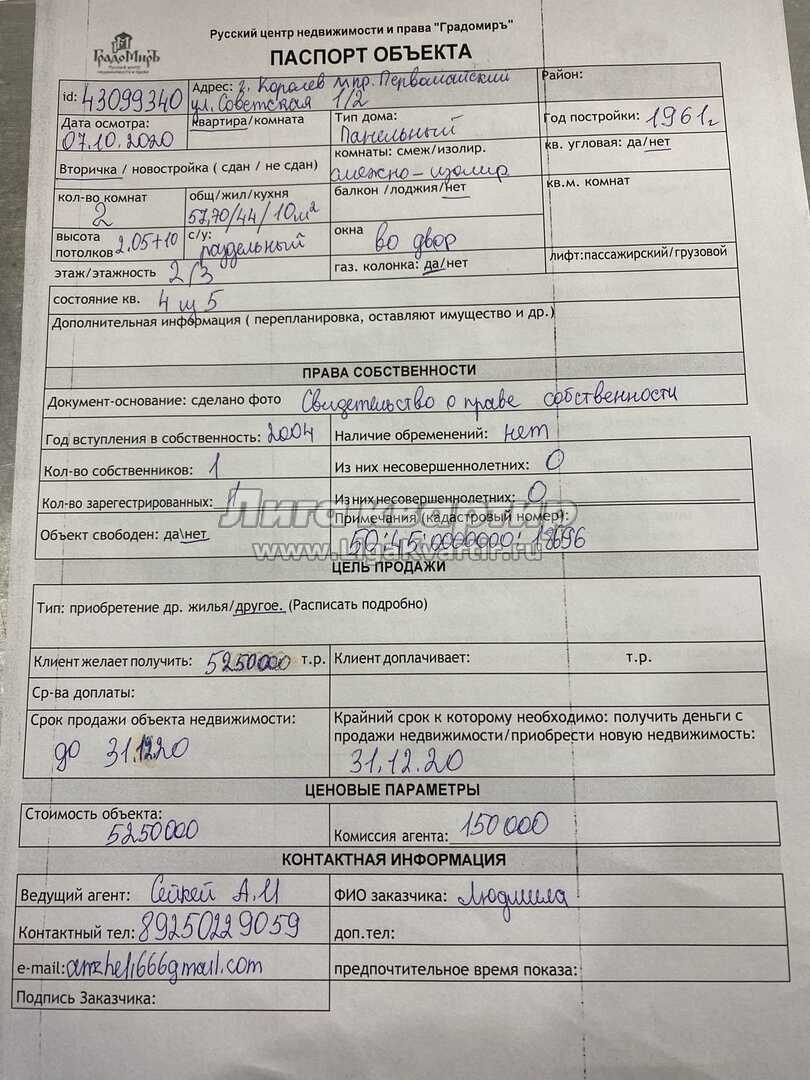 Русский центр недвижимости и права "Градомиръ"
ГрадоМиръ
Русский центр
недвижимости и права
ПАСПОРТ ОБЪЕКТА
id: 43099340
Адрес: г. Королев мкр. Первомайский
ул. Советская 1/2
Район:
Дата осмотра:
07.10.2020
Квартира/комната
Тип дома:
Панельный
Год постройки: 1961г
Вторичка / новостройка ( сдан / не сдан)
комнаты: смеж/изолир.
смежно-изолир
кв. угловая: да/нет
кол-во комнат
2
общ/жил/кухня
57,70/44/10м²
балкон /лоджия/нет
кв.м. комнат
высота
потолков 2.05+10
с/у:
раздельный
окна
во двор
этаж/этажность 2/3
газ. колонка: да/нет
лифт:пассажирский/грузовой
состояние кв. 4 из 5
Дополнительная информация ( перепланировка, оставляют имущество и др.)
ПРАВА СОБСТВЕННОСТИ
Документ-основание: сделано фото Свидетельство о праве собственности
Год вступления в собственность: 2004
Наличие обременений: нет
Кол-во собственников: 1
Из них несовершеннолетних: 0
Кол-во зарегестрированных:
Из них несовершеннолетних: 0
Лига квартир
www.Ligakvartir.ru
Объект свободен: да\нет
Примечания (кадастровый номер):
50:45:0000000:
ЦЕЛЬ ПРОДАЖИ
Тип: приобретение др. жилья/другое. (Расписать подробно)
Клиент желает получить: 5250000 т.р.
Клиент доплачивает: т.р.
Ср-ва доплаты:
Срок продажи объекта недвижимости:
до 31.12.20
Крайний срок к которому необходимо: получить деньги с
продажи недвижимости/приобрести новую недвижимость:
31.12.20
ЦЕНОВЫЕ ПАРАМЕТРЫ
Стоимость объекта:
5250000
Комиссия агента: 150000
КОНТАКТНАЯ ИНФОРМАЦИЯ
Ведущий агент: Сейкей А.И
ФИО заказчика: Людмила
Контактный тел: 89250229059
доп.тел:
e-mail: anzheli666gmail.com
предпочтительное время показа:
Подпись Заказчика: